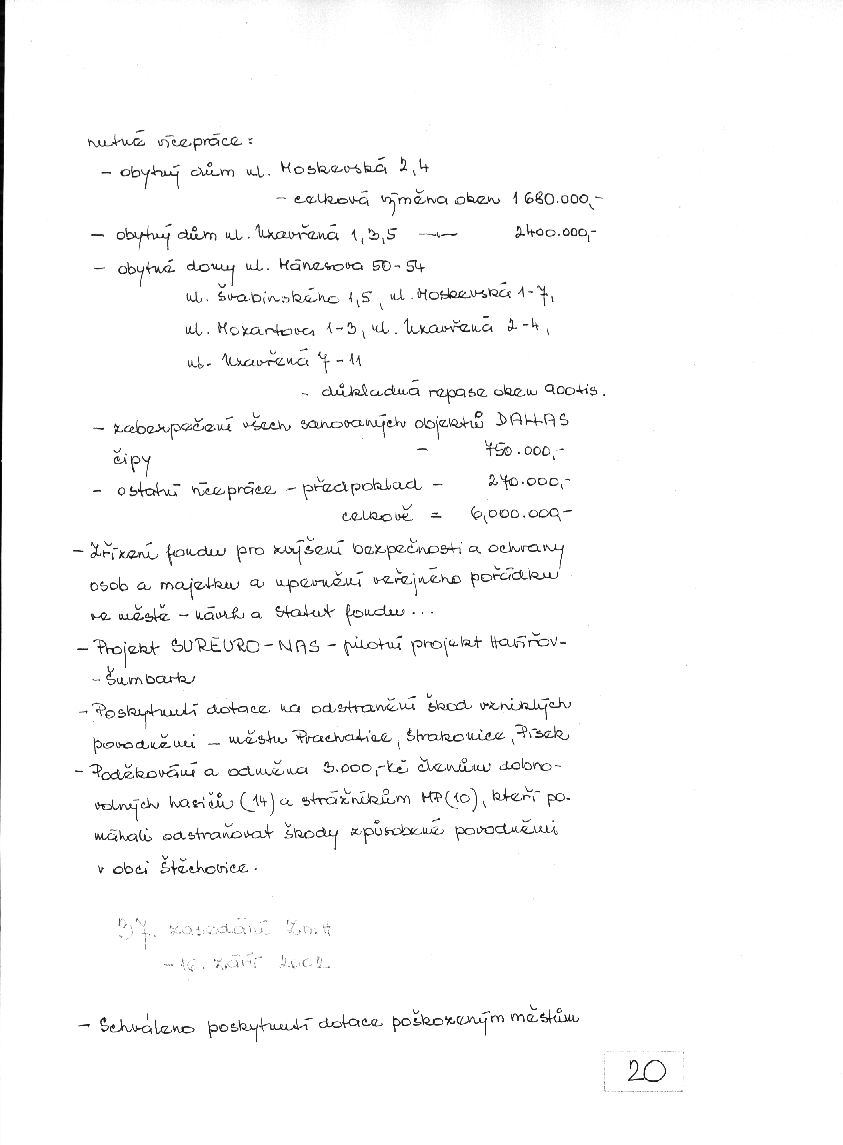 nutné vícepráce:
- obytný dům ul. Moskevská 2,4
- celková výměna oken 1 680.000,-
- obytný dům ul. Uzavřená 1,3,5 —"— 2400.000,-
- obytné domy ul. Mánesova 50-54
ul. Švabinského 1,5, ul. Moskevská 1-7,
ul. Mozartova 1-3, ul. Uzavřená 2-4,
ul. Uzavřená 7-11
- důkladná repase oken 900tis.
- zabezpečení všech sanovaných objektů DALLAS
čipy - 750.000,-
- ostatní vícepráce - předpoklad - 270.000,-
celkově = 6,000.000,-
- Zřízení fondu pro zvýšení bezpečnosti a ochrany
osob a majetku a upevnění veřejného pořádku
ve městě - návrh a statut fondu...
- Projekt SUREURO-NAS - pilotní projekt Havířov-
- Šumbark
- Poskytnutí dotace na odstranění škod vzniklých
povodněmi - městu Prachatice, Strakonice, Písek
- Poděkování a odměna 3.000,-kč členům dobro-
volných hasičů (14) a strážníkům MP(10), kteří po-
máhali odstraňovat škody způsobené povodněmi
v obci Štěchovice.
37. zasedání
- 16. září 2002
- Schváleno poskytnutí dotace poškozeným městům
20